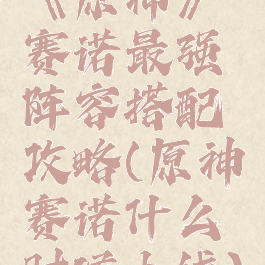 《原神》
赛诺最强
阵容搭配
攻略(原神
赛诺什么